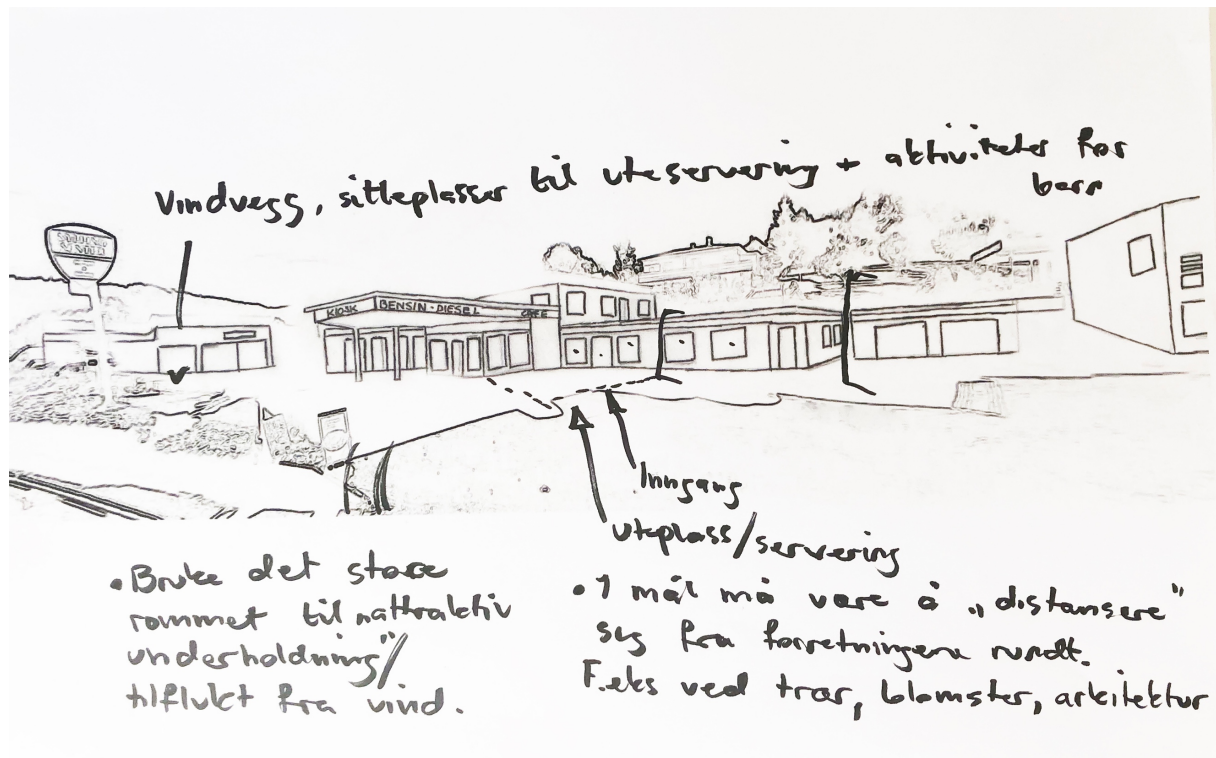 Vindvegg, sitteplasser til uteservering + aktiviteter for
barn
KIOSK
BENSIN - DIESEL
CAFE
Inngang
Uteplass/servering
• Bruke det store
rommet til „attraktiv
underholdning"/
tilflukt fra vind.
• 1 mål må være å „distansere"
seg fra forretningene rundt.
F.eks ved trær, blomster, arkitektur